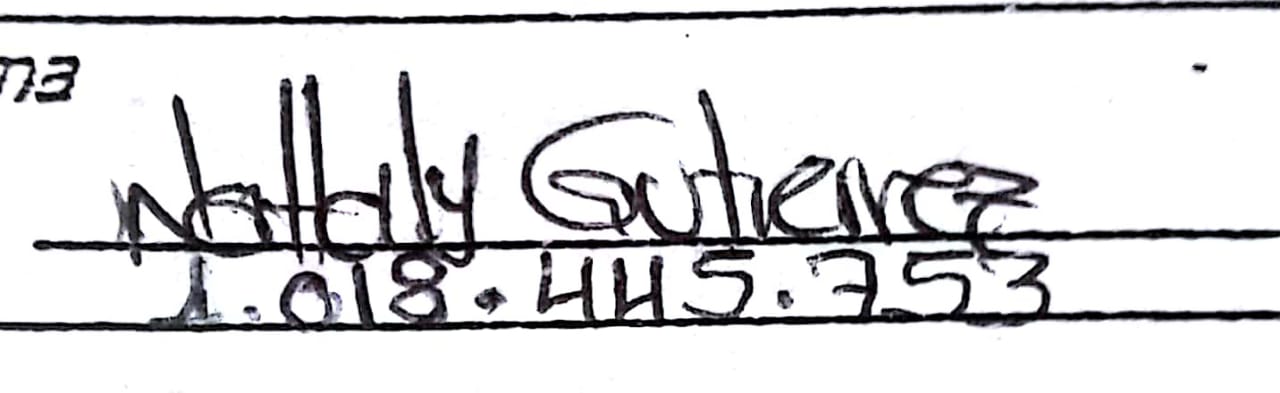 Nattaly Gutierrez
1.018.445.753